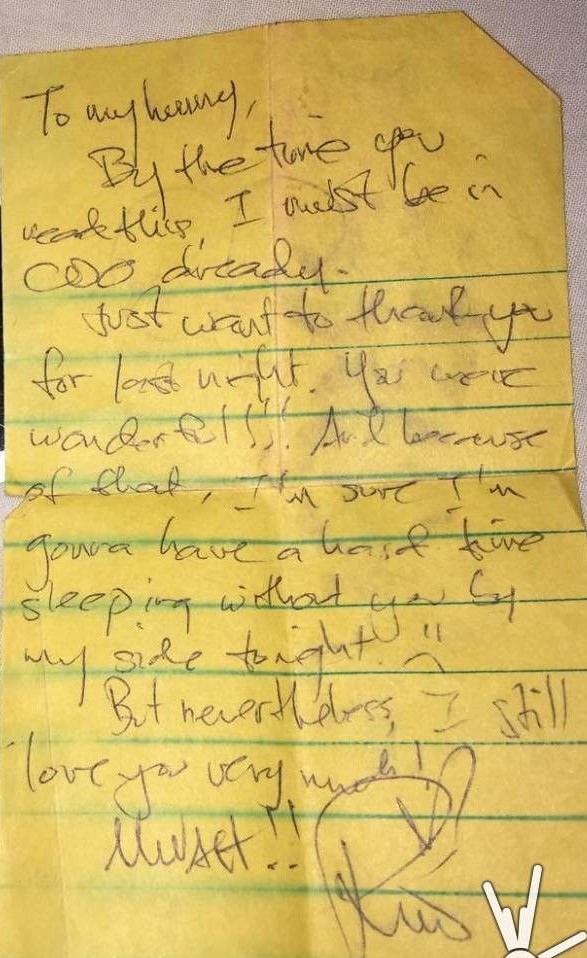 To my hunny,
By the time you
read this, I must be in
CDO already.
Just want to thank you
for last night. You were
wonderful!!! And because
of that, I'm sure I'm
gonna have a hard time
sleeping without you by
my side tonight!
But nevertheless, I still
love you very much!